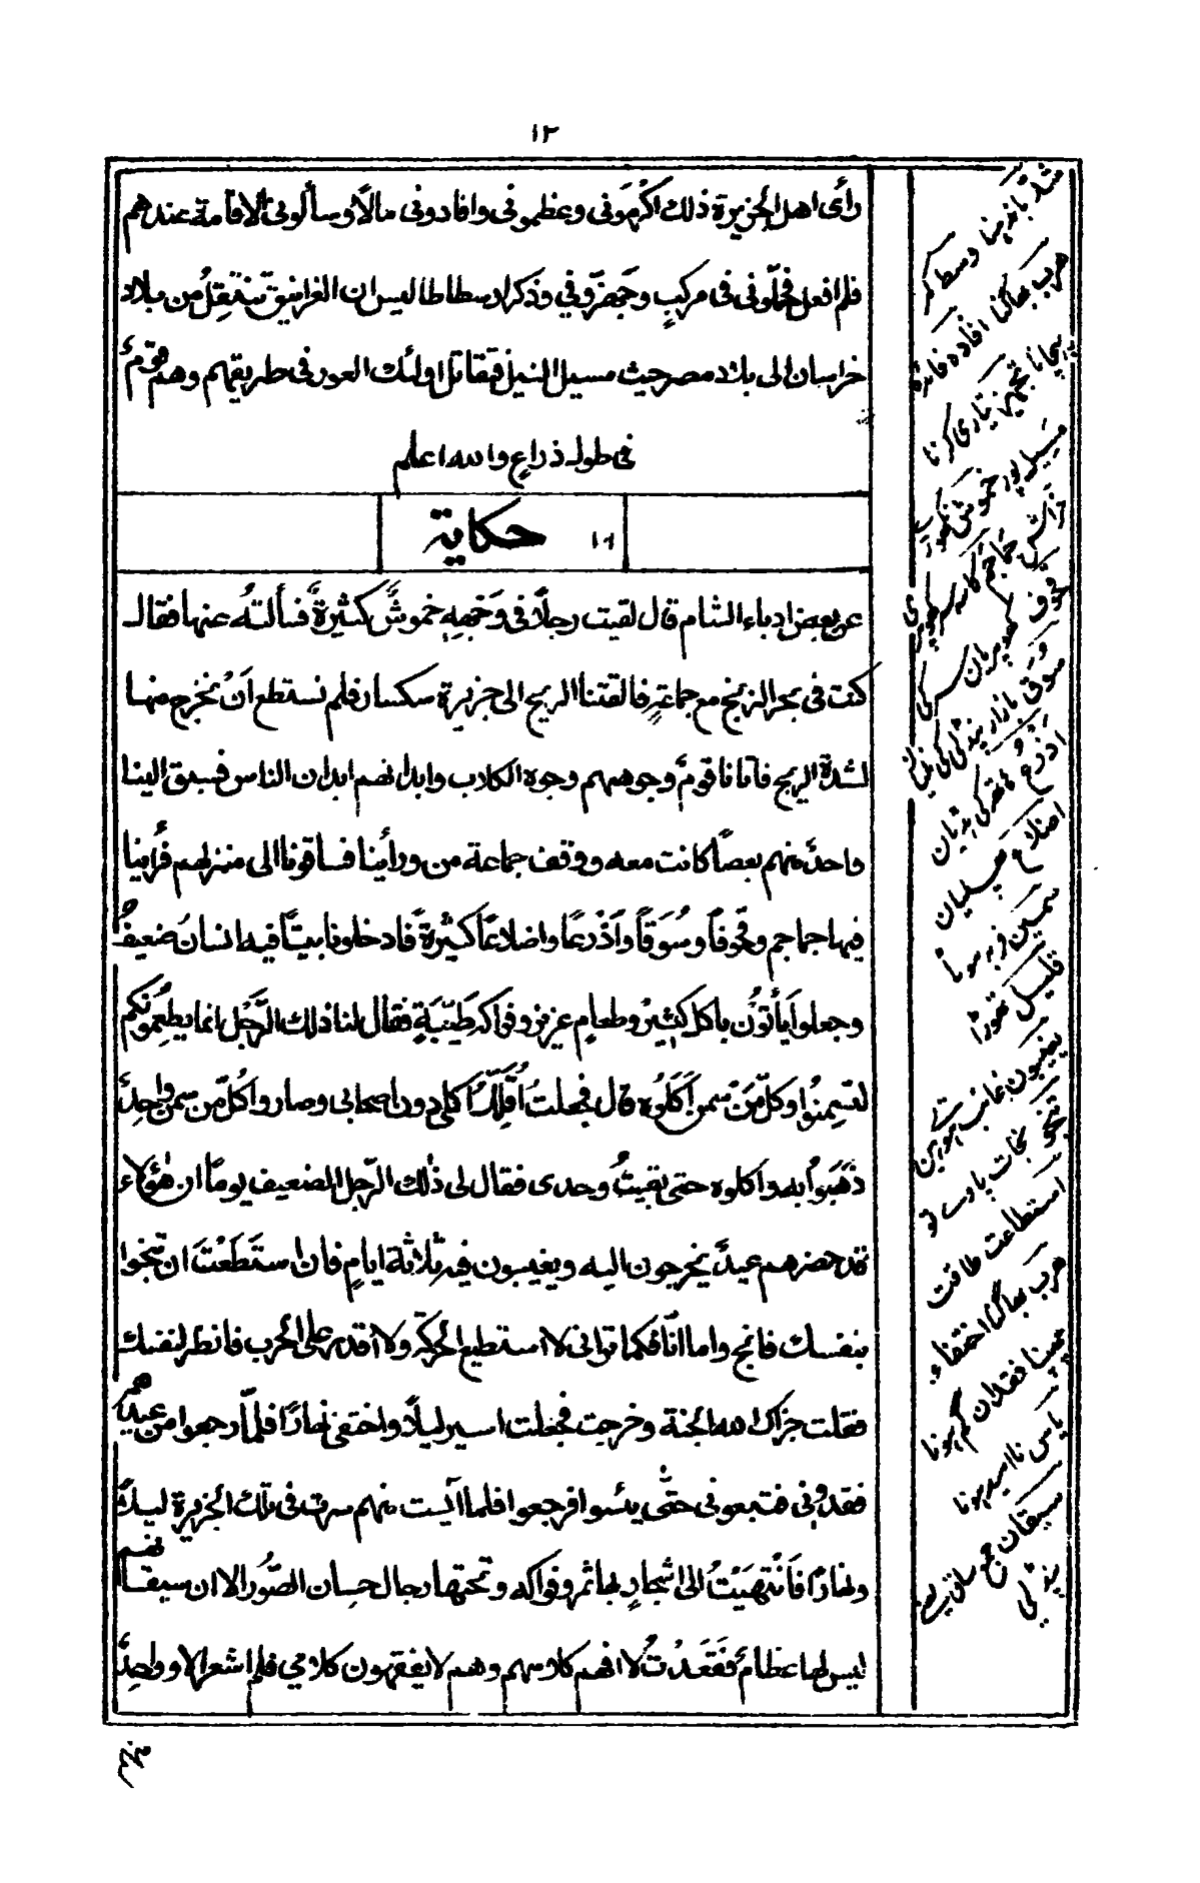 ١٢
رأى اهل الجزيرة ذلك اكرموني وعظموني وافادوني مالًا وسألوني الاقامة عندهم
فلم افعل فحملوني في مركبٍ وجهزوني وذكر ارسطاطاليس ان الغرانيق تنتقل من بلاد
خراسان الى بلاد مصر حيث مسيل النيل فتقاتل اولئك العور في طريقهم وهم قوم
في طول ذراعٍ والله اعلم
حكاية ١٦
عن بعض ادباء الشام قال لقيت رجلًا في وجهه خموشٌ كثيرةٌ فسألته عنها فقال
كنت في بحر الزنج مع جماعةٍ فالقتنا الريح الى جزيرة سكسار فلم نستطع ان نخرج منها
لشدة الريح فاتانا قومٌ وجوههم وجوه الكلاب وابدانهم ابدان الناس فسبق الينا
واحدٌ منهم بعصًا كانت معه ووقف جماعة من ورأينا فساقونا الى منزلهم فرأينا
فيها جماجم وقحوفًا وسُوَقًا وأذرعًا واضلاعًا كثيرةً فادخلونا بيتًا فيه انسانٌ ضعيفٌ
وجعلوا يأتون باكل كثيرٍ وطعامٍ عزيز وفواكه طيّبةٍ فقال لنا ذلك الرَّجُل انما يطعمونكم
لتسمنوا وكلّ مَن سمن أكلوه قال فجعلتُ أقلّل أكلي دون اصحابي وصاروا كلّ من سمن واحدٌ
ذهبوا به واكلوه حتى بقيتُ وحدى فقال لى ذٰلك الرّجل الضعيف يومًا ان هٰؤلاء
قد حضرهم عيدٌ يخرجون اليه ويغيبون فيه ثلاثة ايامٍ فان استطَعْتَ ان تنجوا
بنفسك فانج واما انا فكما ترانى لا استطيع الحركة ولا اقدر على الهرب فانظر لنفسك
فقلت جزاك الله الجنة وخرجت فجعلت اسير ليلًا واختفى نهارًا فلمّا رجعوا من عيدهم
فقدونى فتبعونى حتّى يئسوا فرجعوا فلما آيست منهم سرت فى تلك الجزيرة ليلًا
ونهارًا فانتهيتُ الى اشجارٍ لها ثمر وفواكه وتحتها رجال حسان الصُّور الا ان سيقانهم
ليس لها عظامٌ فقعدتُ لا افهم كلامهم وهم لا يفقهون كلامي فلم اشعر الا وواحدٌ
وسط كمر
هرب بھاگنا افاده فائدہ
تجهيز تیاری کرنا
جماجم کاسہ سر
سوق بازار
اذرع
اضلاع پسلیان
سمين فربہ موٹا
قليل تھوڑا
يغيبون غائب ہووین
تنجو نجات پاوے تو
استطاعت طاقت
هرب بھاگنا اختفاء
چھپنا فقدان گم ہونا
یاس ناامید ہونا
سيقان جمع ساق